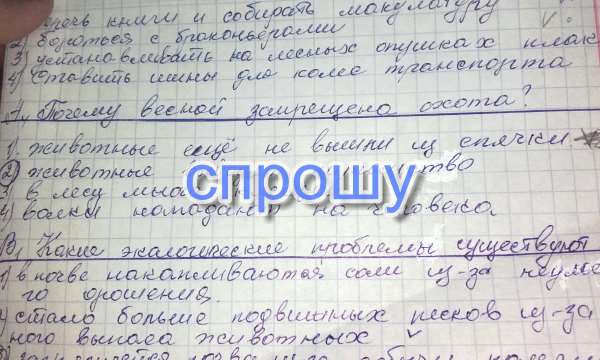 беречь книги и собирать макулатуру
2) бороться с браконьерами
3) устанавливать на лесных опушках плак
4) ставить шины для колес транспорта
А, Почему весной запрещена охота?
1) животные ещё не вышли из спячки
2) животные
3) в лесу
4) волки нападают на человека
В, Какие экологические проблемы существуют
1) в почве накапливаются соли из-за неуме
го орошения.
стало больше подвижных песков из-за
ного выпаса животных
спрошу